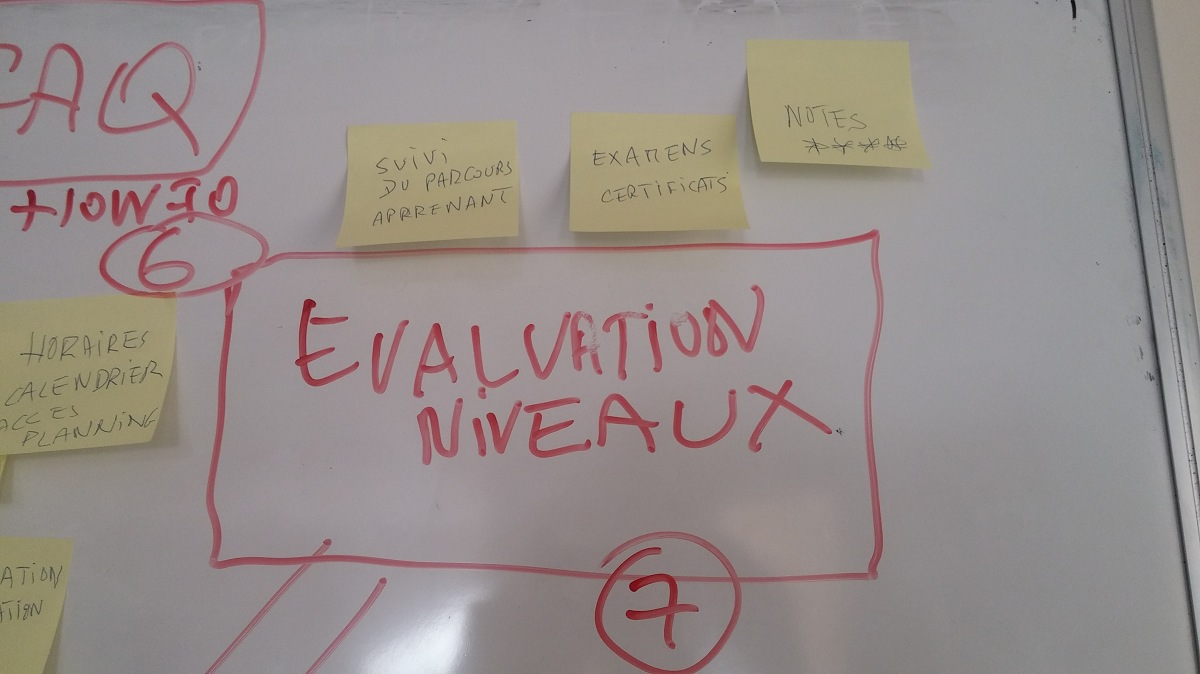 FAQ
HOW TO
6
SUIVI
DU PARCOURS
APPRENANT
EXAMENS
CERTIFICATS
NOTES
HORAIRES
CALENDRIER
ACCES
PLANNING
EVALUATION
NIVEAUX
7
ATION
ATION